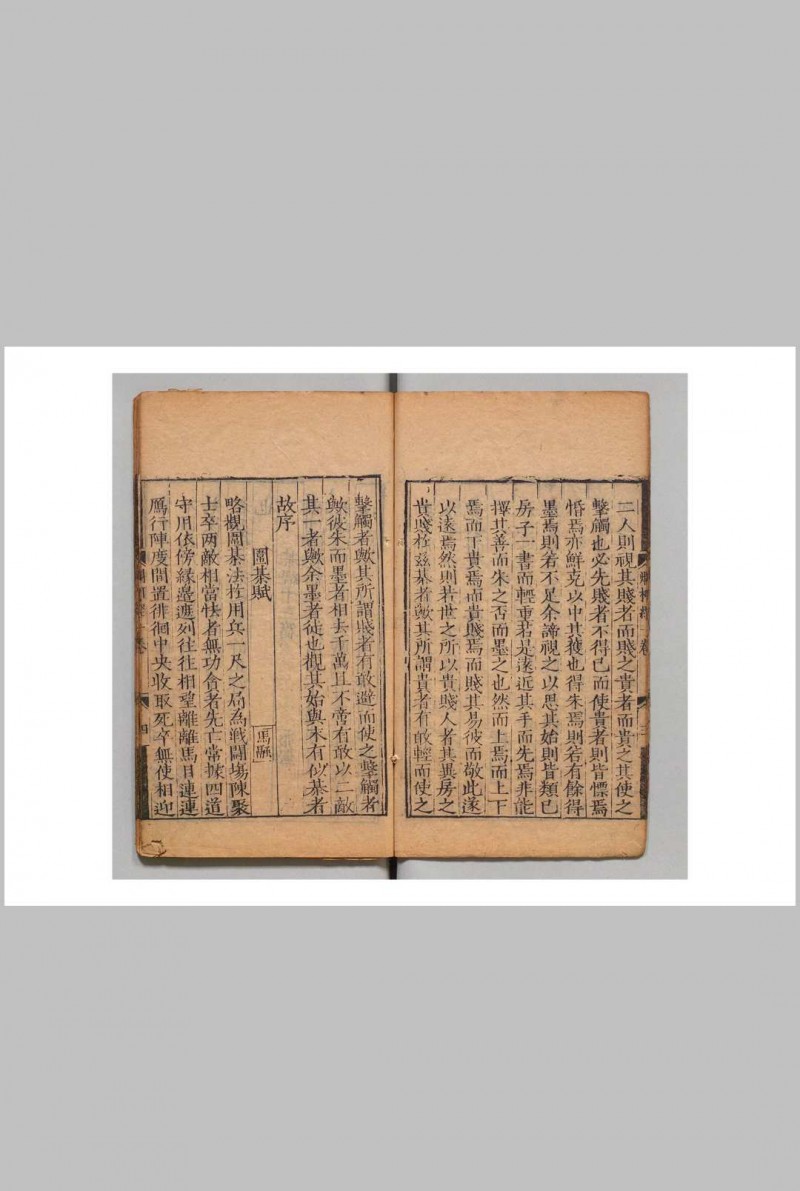 二人則視其賤者而賤之貴者而貴之其使之
擊觸也必先賤者不得已而使貴者則皆慓焉
惛焉亦鮮克以中其獲也得朱焉則若有餘得
墨焉則若不足余諦視之以思其始則皆類已
房子一書而輕重若是遠近其手而先焉非能
擇其善而朱之否而墨之也然而上焉而上下
焉而下貴焉而貴賤焉而賤其易彼而敬此遂
以遠焉然則若世之所以貴賤人者其異房之
貴賤在玆棊者歟其所謂貴者有敢輕而使之
擊觸者歟其所謂賤者有敢避而使之擊觸者
歟彼朱而墨者相去千萬且不啻有敢以二敵
其一者歟余墨者徒也觀其始與末有似棊者
故序
圍棊賦
馬融
略觀圍棊法於用兵一尺之局為戰鬪場陳聚
士卒两敵相當怯者無功貪者先亡當據四道
守用依傍緣邊遮列往往相望離離馬目連連
鴈行陣度間置徘徊中央收取死卒無使相迎
卷
四